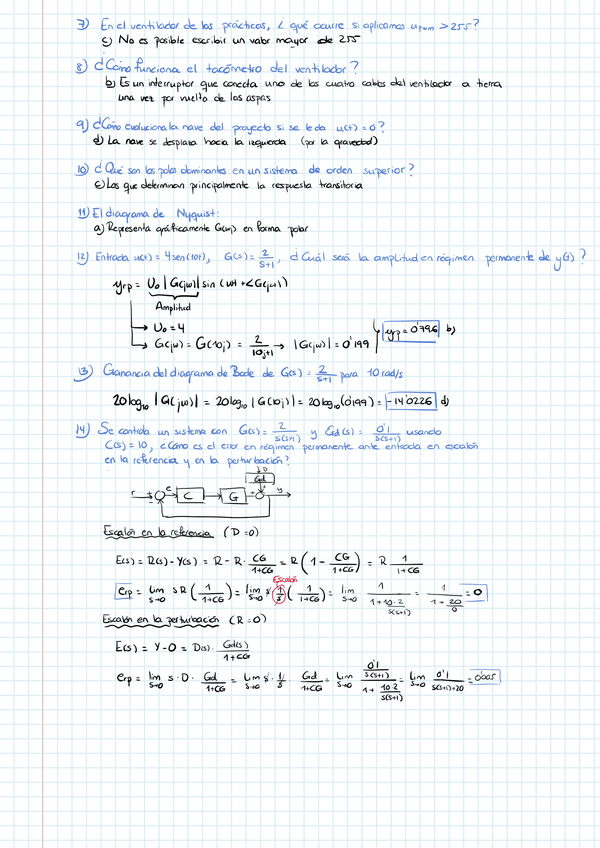 7) En el ventilador de las prácticas, ¿ qué ocurre si aplicamos upwm > 255 ?
c) No es posible escribir un valor mayor de 255
8) ¿ Cómo funciona el tacómetro del ventilador ?
b) Es un interruptor que conecta uno de los cuatro cables del ventilador a tierra
una vez por vuelta de las aspas
9) ¿Cómo evoluciona la nave del proyecto si se le da u(t) = 0 ?
d) La nave se desplaza hacia la izquierda (por la gravedad)
10) ¿ Qué son los polos dominantes en un sistema de orden superior ?
c) Los que determinan principalmente la respuesta transitoria
11) El diagrama de Nyquist:
a) Representa gráficamente G(jω) en forma polar
12) Entrada u(t) = 4 sen(10t), G(s) = 2/s+1, ¿ Cuál será la amplitud en régimen permanente de y(t) ?
yrp = U0 |G(jω)| sin (ωt + ∠G(jω))
Amplitud
→ U0 = 4
→ G(jω) = G(10j) = 2/10j+1 → |G(jω)| = 0'199
yp = 0'796 b)
13) Ganancia del diagrama de Bode de G(s) = 2/s+1 para 10 rad/s
20 log10 |G(jω)| = 20 log10 |G(10j)| = 20 log10 (0'199) = -14'0226 d)
14) Se controla un sistema con G(s) = 2/s(s+1) y Gd(s) = 0'1/s(s+1) usando
C(s) = 10, ¿Cómo es el error en régimen permanente ante entrada en escalón
en la referencia y en la perturbación?
D
Gd
r + - e C G + + y
Escalón en la referencia (D = 0)
E(s) = R(s) - Y(s) = R - R · CG/1+CG = R (1 - CG/1+CG) = R 1/1+CG
Escalón
erp = lim s→0 sR (1/1+CG) = lim s→0 s 1/s (1/1+CG) = lim s→0 1/1+10·2/s(s+1) = 1/1+20/0 = 0
Escalón en la perturbación (R = 0)
E(s) = Y - 0 = D(s) · Gd(s)/1+CG
erp = lim s→0 s · D · Gd/1+CG = lim s→0 s · 1/s Gd/1+CG = lim s→0 0'1/s(s+1)/1+10·2/s(s+1) = lim s→0 0'1/s(s+1)+20 = 0'005